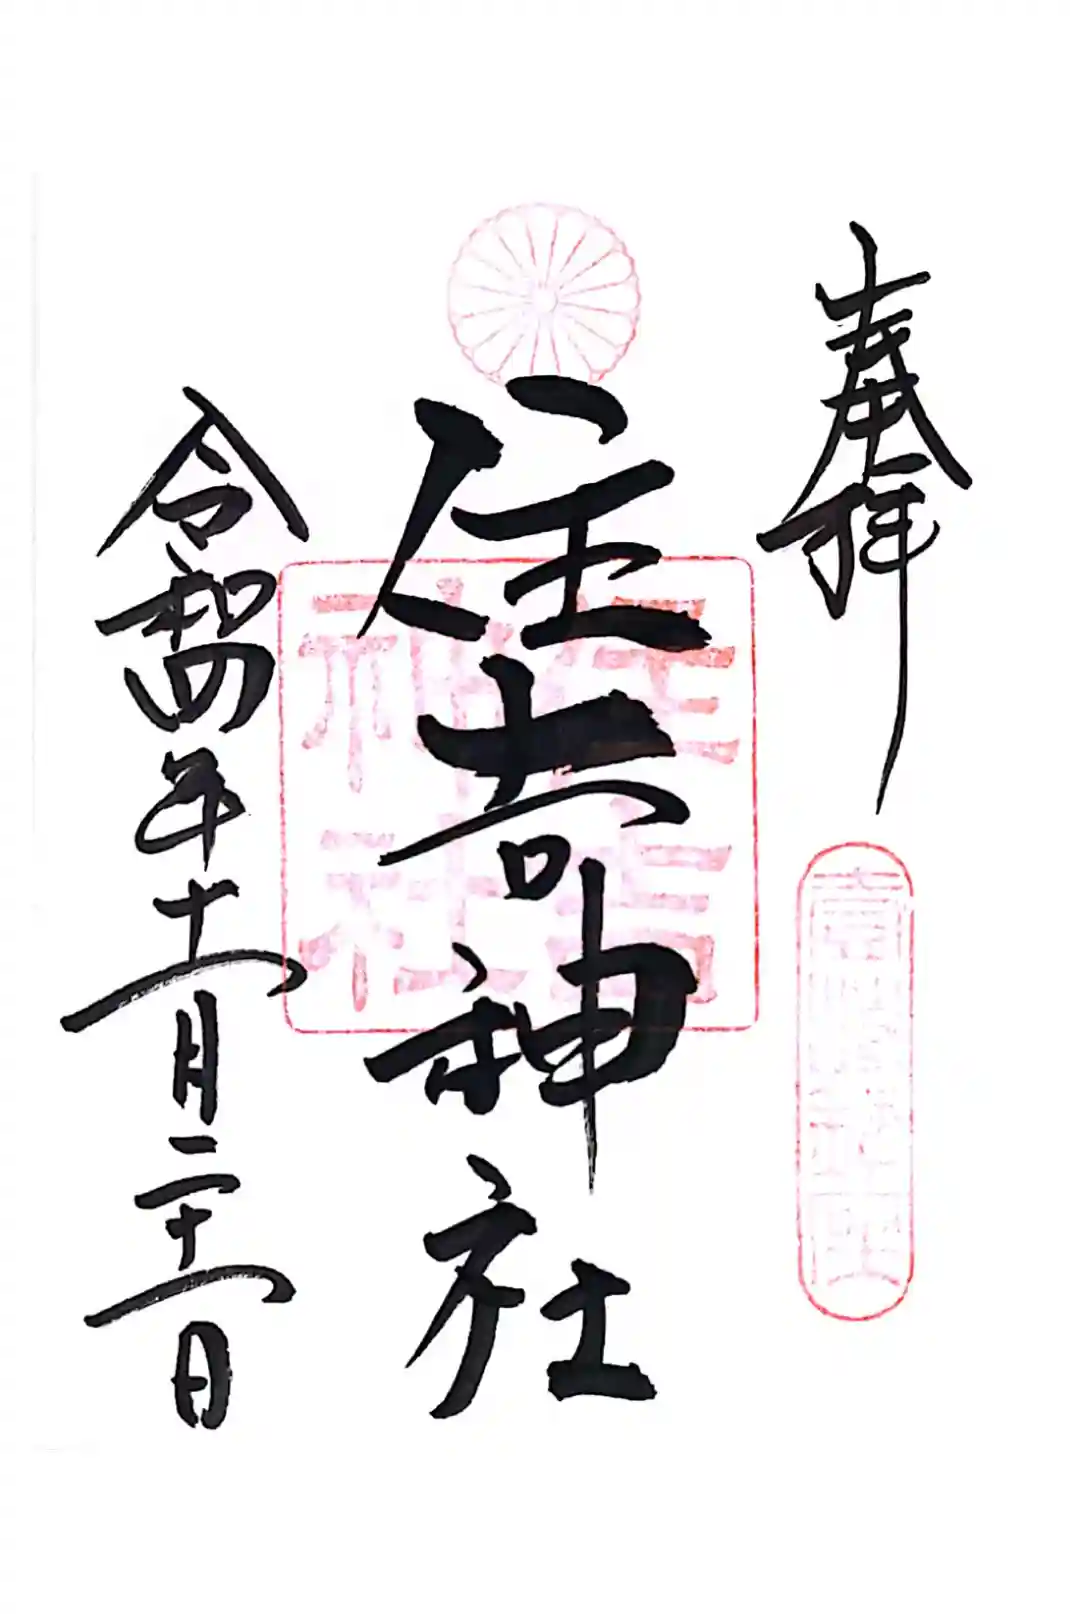 奉拝
住吉神社
住吉神社
令和四年十一月二十一日